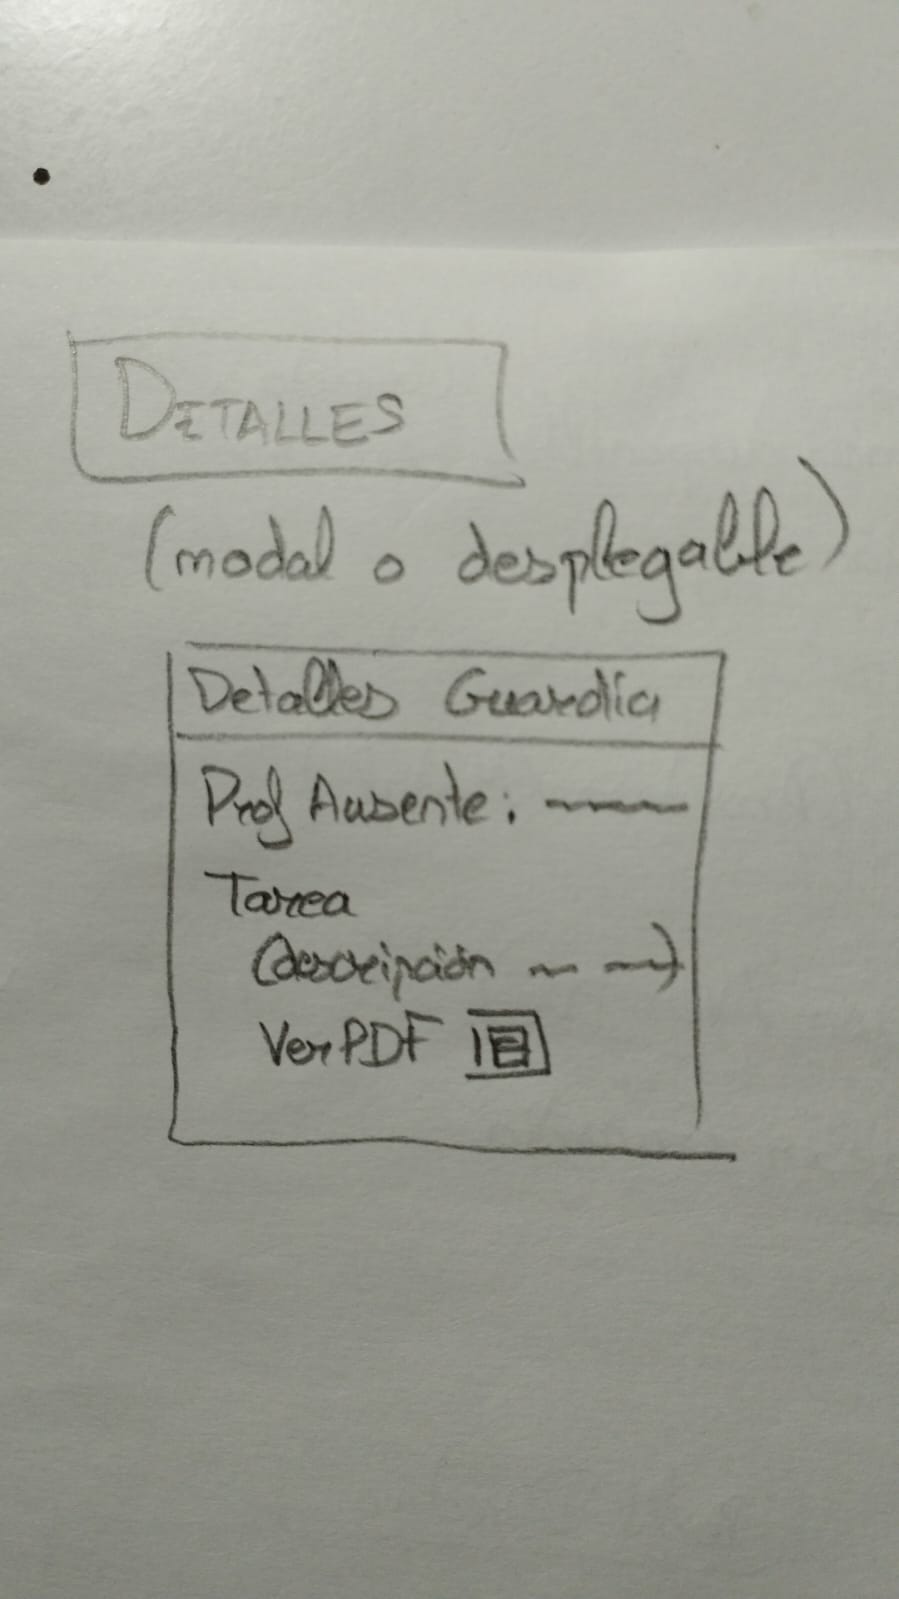 DETALLES
(modal o desplegable)
Detalles Guardia
Prof Ausente:
Tarea
(descripción
Ver PDF